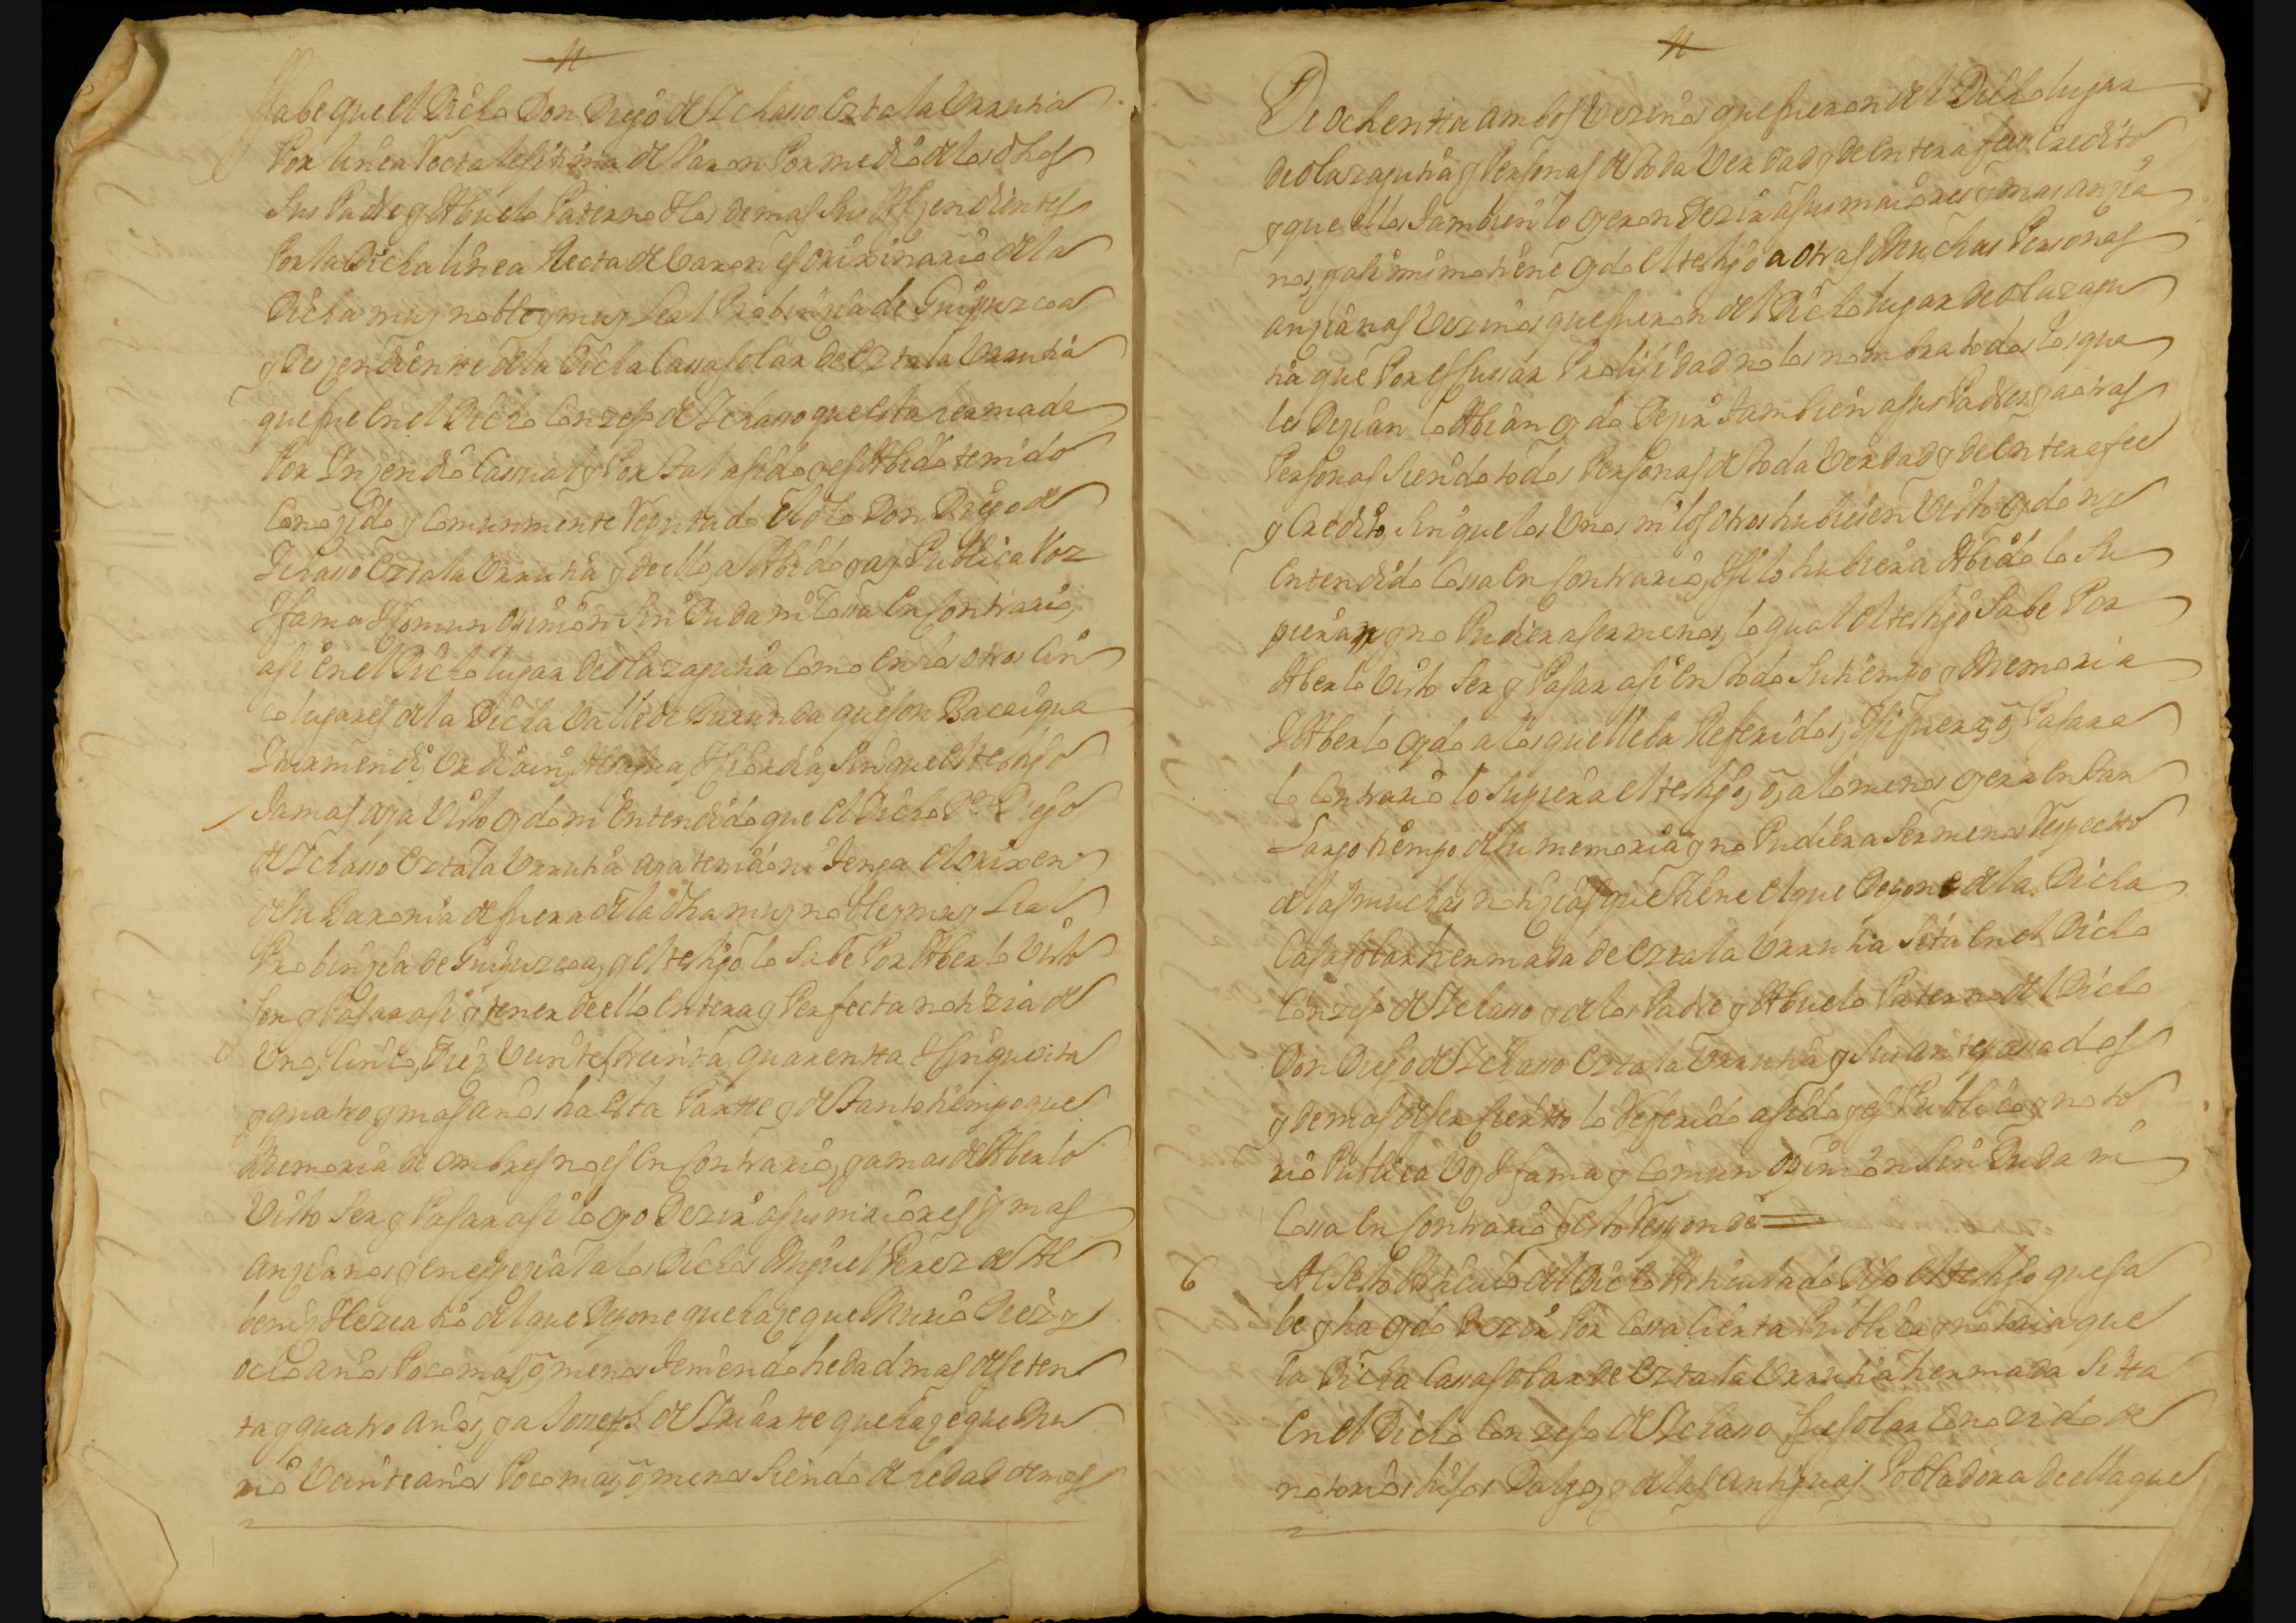 sabe que el Dicho Don Diego de Ichasso Oztala Vrrutia
Por linea Recta lesitima de Varon Por medio de los dhos
sus Padre y Abuelo Paterno Y los demas sus Aszendientes
Por la Dicha linea Recta de baron es orixinario de la
Dicha muy noble y muy Leal Probinzia de Guipuzcoa
y Deszendiente de la Dicha Cassa solar de Oztala Vrrutia
que fue en el Dicho Conzejo de Ichasso que esta hermada
Por Inzendio Cassual y Por tal asido y es Abido tenido
Conozido y Comunmente Reputado el dho Don Diego de
Ichasso Oztala Vrrutia y de ello a Abido y ay Publica Voz
Y fama Y Comun opinion sin Duda ni Cossa en Contrario,
asi en el Dicho lugar de olazagutia Como en los otros Cin
co lugares de la Dicha Valle de Burunda que son Bacaigua
Iturmendi, Vrdiain, Alsasua, Y Ziordia, sin que el testigo
Jamas aya Visto oydo ni Entendido que el Dicho Dn Diego
de Ichasso Oztala Vrrutia aya tenido ni tenga el orixen
de su Baronia de fuera de la dha muy noble y muy Leal
Probinzia de Guipuzcoa, y el testigo lo sabe Por Aberlo Visto
ser y Pasar asi y tener de ello entera y Perfecta notizia de
Vno, Cinco, Diez, Veinte, treinta, quarenta Y Cinquenta
y quatro y mas años ha esta Partte y de tanto tiempo que
Memoria de ombres no es en Contrario, y a mas de Aberlo
Visto ser y Pasar asi lo oyo Dezir a sus maiores y mas
anzianos y en espezial a los Dichos Miguel Perez de Al
beniz Y Lezea tio del que Depone que haze que Murio Diez y
ocho años Poco mas, o, menos teniendo hedad mas de seten
ta y quatro años, y a Joseph de Iriartte que haze que Mu
rio Veinte años Poco mas, o, menos siendo de hedad de mas
De ochentta ambos Vezinos que fueron del Dicho lugar
de olazagutia y Personas de toda Verdad y de entera fee Y Credito
y que ellos tambien lo oyeron Dezir a sus maiores y mas anzia
nos, y asi mismo tiene oydo el testigo a otras Muchas Personas
anzianas Vezinos que fueron del Dicho lugar de olazagu
tia que Por escussar Prolijidad no los nombra todos los qua
les Dezian lo Abian oydo Dezir tambien a sus Padres y a otras
Personas siendo todos Personas de toda Verdad y de entera fee
y Credito, sin que los Vnos ni los otros hubiesen Visto oydo ni
entendido Cossa en Contrario, Y si lo hubiera Abido lo su
pieran y no Pudiera ser menos, lo qual el testigo sabe Por
Aberlo Visto ser y Pasar asi en todo su tiempo y Memoria
Y Aberlo oydo a los que lleba Referidos, Y si fuera, o, Pasara
lo Contrario lo supiera el testigo, o, a lo menos oyera en tan
Largo tiempo de su memoria y no Pudiera ser menos Respectto
de las muchas notizias que tiene el que Depone de la Dicha
Casa solar hermada de Oztala Vrrutia sita en el Dicho
Conzejo de Ichasso y de los Padre y Abuelo Paterno del Dicho
Don Diego de Ichasso Oztala Vrrutia y sus antepassados
y demas de ser zierto lo Referido asido y es Publico y noto
rio Publica Voz Y fama y Comun opinion sin Duda ni
Cossa en Contrario y esto Responde
6 Al Sesto Articulo del Dicho Articulado Dijo el testigo que sa
be y ha oydo Dezir Por Cossa Cierta Publica y notoria que
la Dicha Cassa solar de Oztala Vrrutia hermada sitta
en el Dicho Conzejo de Ichasso fue solar Conozido de
notorios hijos Dalgo, y de las antiguas Pobladora de ella que